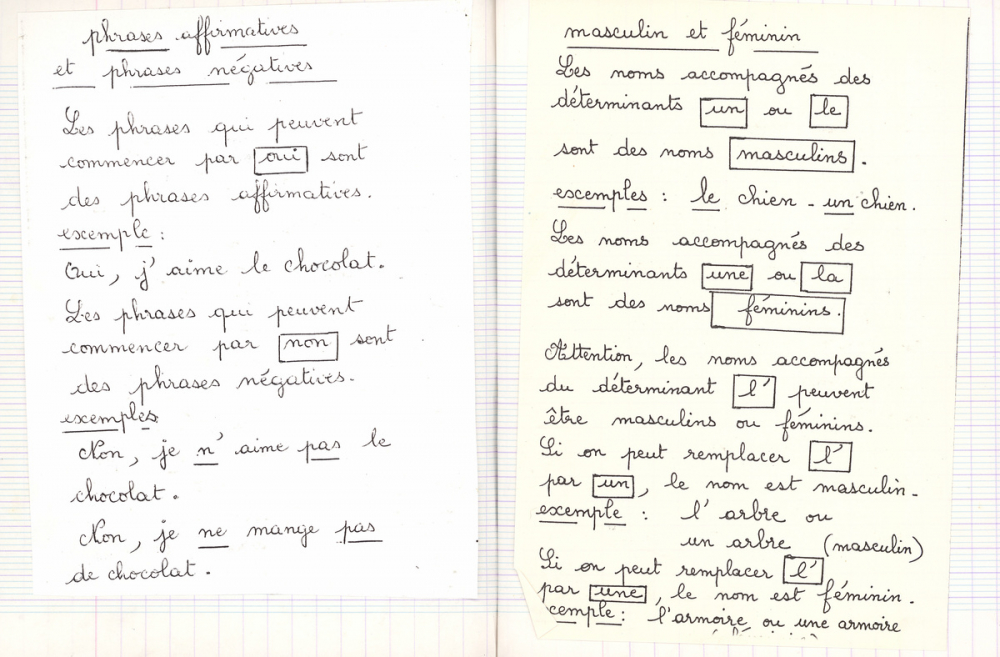 phrases affirmatives
et phrases négatives
Les phrases qui peuvent
commencer par oui sont
des phrases affirmatives.
exemple :
Oui, j'aime le chocolat.
Les phrases qui peuvent
commencer par non sont
des phrases négatives.
exemples
Non, je n'aime pas le
chocolat.
Non, je ne mange pas
de chocolat.
masculin et féminin
Les noms accompagnés des
déterminants un ou le
sont des noms masculins.
exemples : le chien - un chien.
Les noms accompagnés des
déterminants une ou la
sont des noms féminins.
Attention, les noms accompagnés
du déterminant l' peuvent
être masculins ou féminins.
Si on peut remplacer l'
par un, le nom est masculin.
exemple : l'arbre ou
un arbre (masculin)
Si on peut remplacer l'
par une, le nom est féminin.
emple : l'armoire ou une armoire